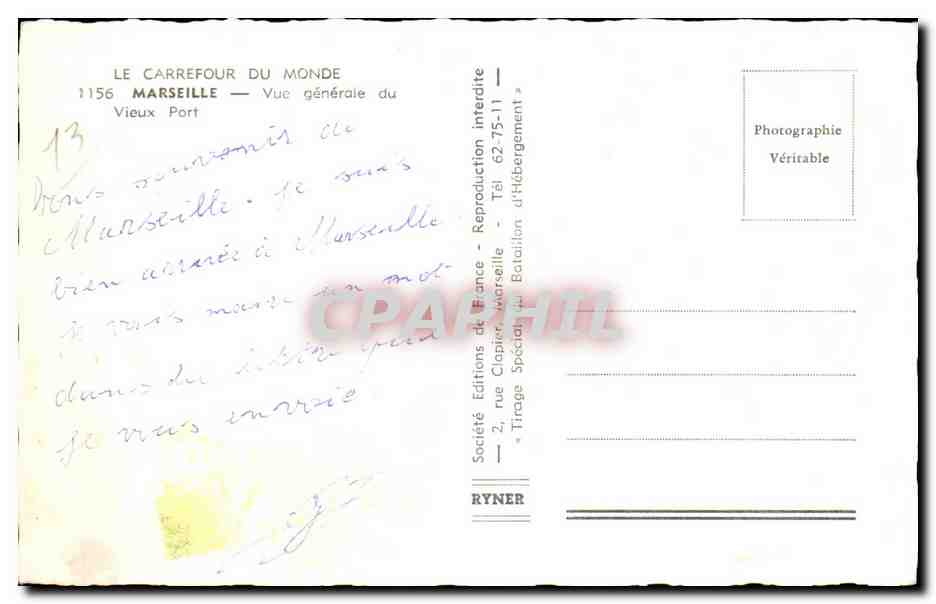 LE CARREFOUR DU MONDE
1156 MARSEILLE — Vue générale du
Vieux Port
13
souvenir de
Marseille. je suis
bien arrivée à Marseille
je vous un mot
dans la lettre que
je vous envoie
CPAPHIL
Société Editions de France - Reproduction interdite
— 2, rue Clapier, Marseille - Tél 62-75-11 —
« Tirage Spécial du Bataillon d'Hébergement »
RYNER
Photographie
Véritable